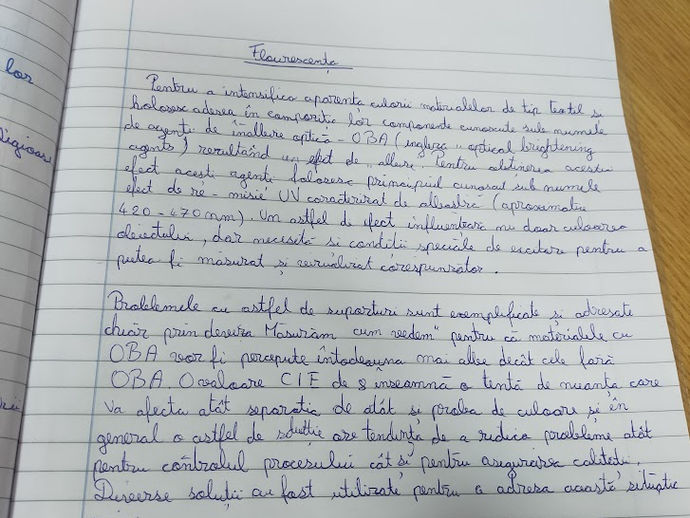 lor
ligioase
Flourescența
Pentru a intensifica aparența culorii materialelor de tip textil și
folosesc adesea în compoziție lor componente cunoscute sub numele
de agenți de înallure optică - OBA (engleză „optical brightening
agents") rezultând un efect de „allure". Pentru obtinerea acestui
efect acesti agenți folosesc principiul cunoscut sub numele
efect de re-misie UV caracterizat de albastră (aproximativ
420-470nm). Un astfel de efect influentează nu doar culoarea
obiectului, dar necesită si conditii speciale de excitare pentru a
putea fi măsurat și vizualizat corespunzător.
Problemele cu astfel de suporturi sunt exemplificate și adresate
chiar prin deviza Măsurăm cum vedem" pentru că materialele cu
OBA vor fi percepute întodeauna mai albe decât cele fară
OBA. O valoare CIE de 8 înseamnă o tentă de nuanța care
va afecta atât separatia de atât si proba de culoare și în
general o astfel de soluttie are tendința de a ridica probleme atât
pentru controlul procesului cât și pentru asigurarea calitatii
Diverse soluții au fost utilizate pentru a adresa această situație